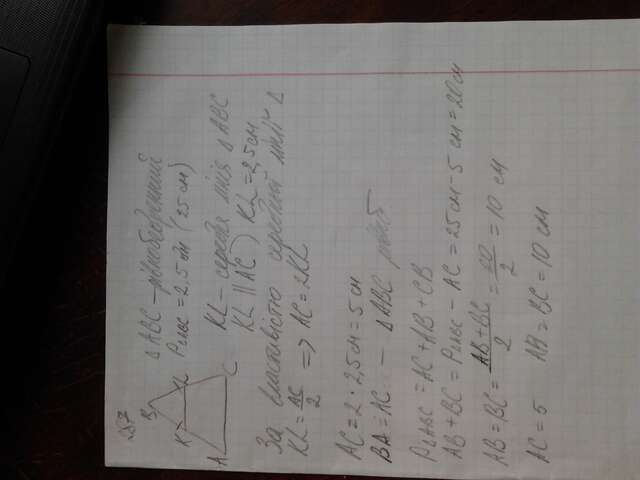 257
B
K L
A C
Δ ABC – рівнобедрений
P△ABC = 2,5 дм (25 см)
KL – середня лінія Δ ABC
KL || AC) KL = 2,5 см
За властивістю середньої лінії Δ
KL = AC/2 => AC = 2KL
AC = 2 · 2,5 см = 5 см
BA = AC – Δ ABC рівноб
P△ABC = AC + AB + CB
AB + BC = P△ABC – AC = 25 см – 5 см = 20 см
AB = BC = AB + BC/2 = 20/2 = 10 см
AC = 5 AB = BC = 10 см